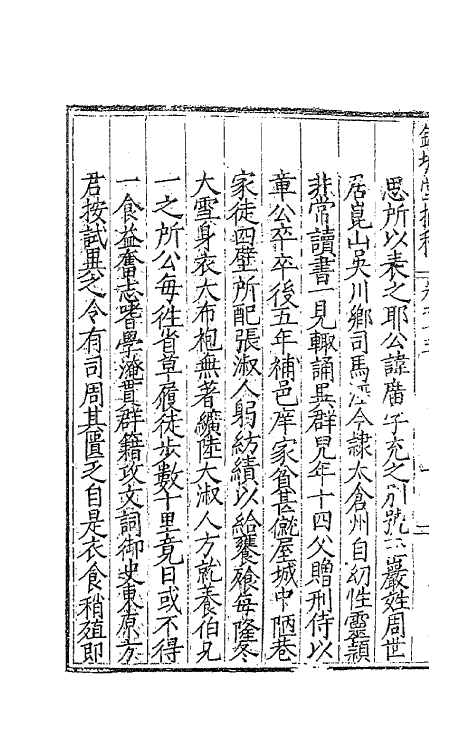 思所以表之耶公諱廣字充之別號三巖姓周世
居崑山吳川鄉司馬涇今隸太倉州自幼性靈穎
非常讀書一見輒誦異群兒年十四父贈刑侍以
章公卒卒後五年補邑庠家貧甚僦屋城中陋巷
家徒四壁所配張淑人躬紡績以給饔飱每隆冬
大雪身衣大布袍無著纊陸大淑人方就養伯兄
一之所公每徃省草履徒步數十里竟日或不得
一食益奮志嗜學淹貫群籍攻文詞御史東原方
君按試異之令有司周其匱乏自是衣食稍殖即